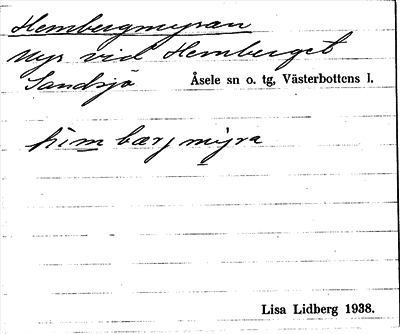 Hembergmyran
Myr vid Hemberget
Sandsjö Åsele sn o. tg, Västerbottens l.
him bærj myra
Lisa Lidberg 1938.